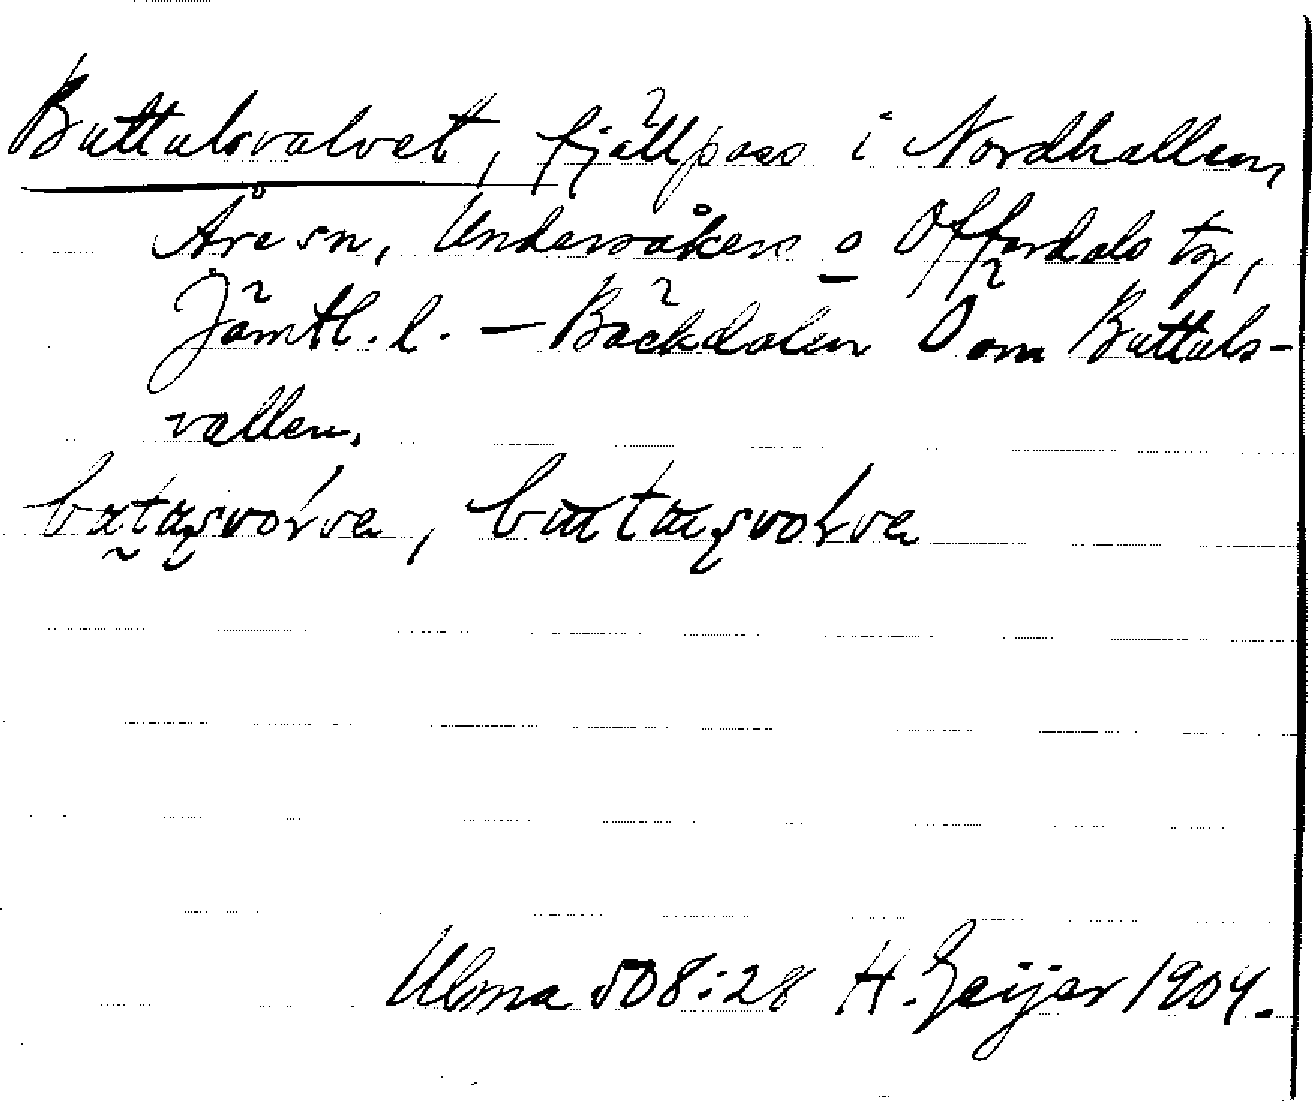 Buttalsvalvet, fjällpass i Nordhallen,
Åre sn, Undersåkers o Offerdals tg,
Jämtl. l. – Bäckdalen Ö om Buttals-
vallen.
Ulma 508:28 H. Geijer 1904.